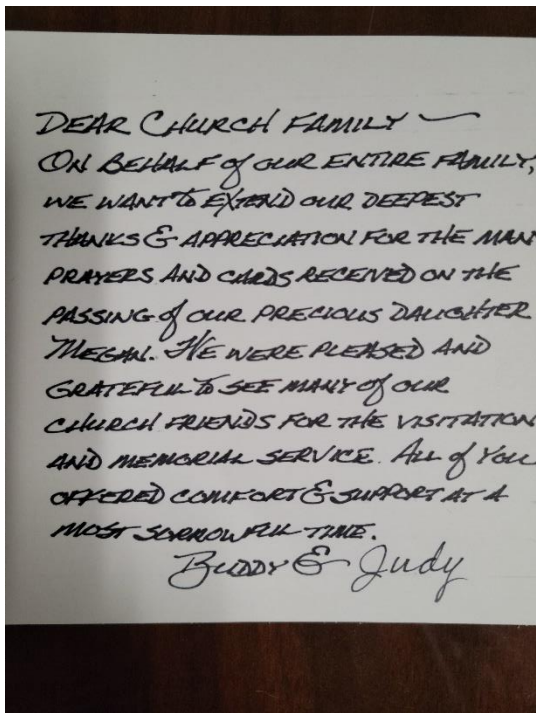 DEAR CHURCH FAMILY —
ON BEHALF of OUR ENTIRE FAMILY,
WE WANT to EXTEND OUR DEEPEST
THANKS & APPRECIATION FOR THE MAN
PRAYERS AND CARDS RECEIVED ON THE
PASSING of OUR PRECIOUS DAUGHTER
MEGAN. WE WERE PLEASED AND
GRATEFUL to SEE MANY of OUR
CHURCH FRIENDS FOR THE VISITATION
AND MEMORIAL SERVICE. ALL of YOU
OFFERED COMFORT & SUPPORT AT A
MOST SORROWFUL TIME.
BUDDY & Judy